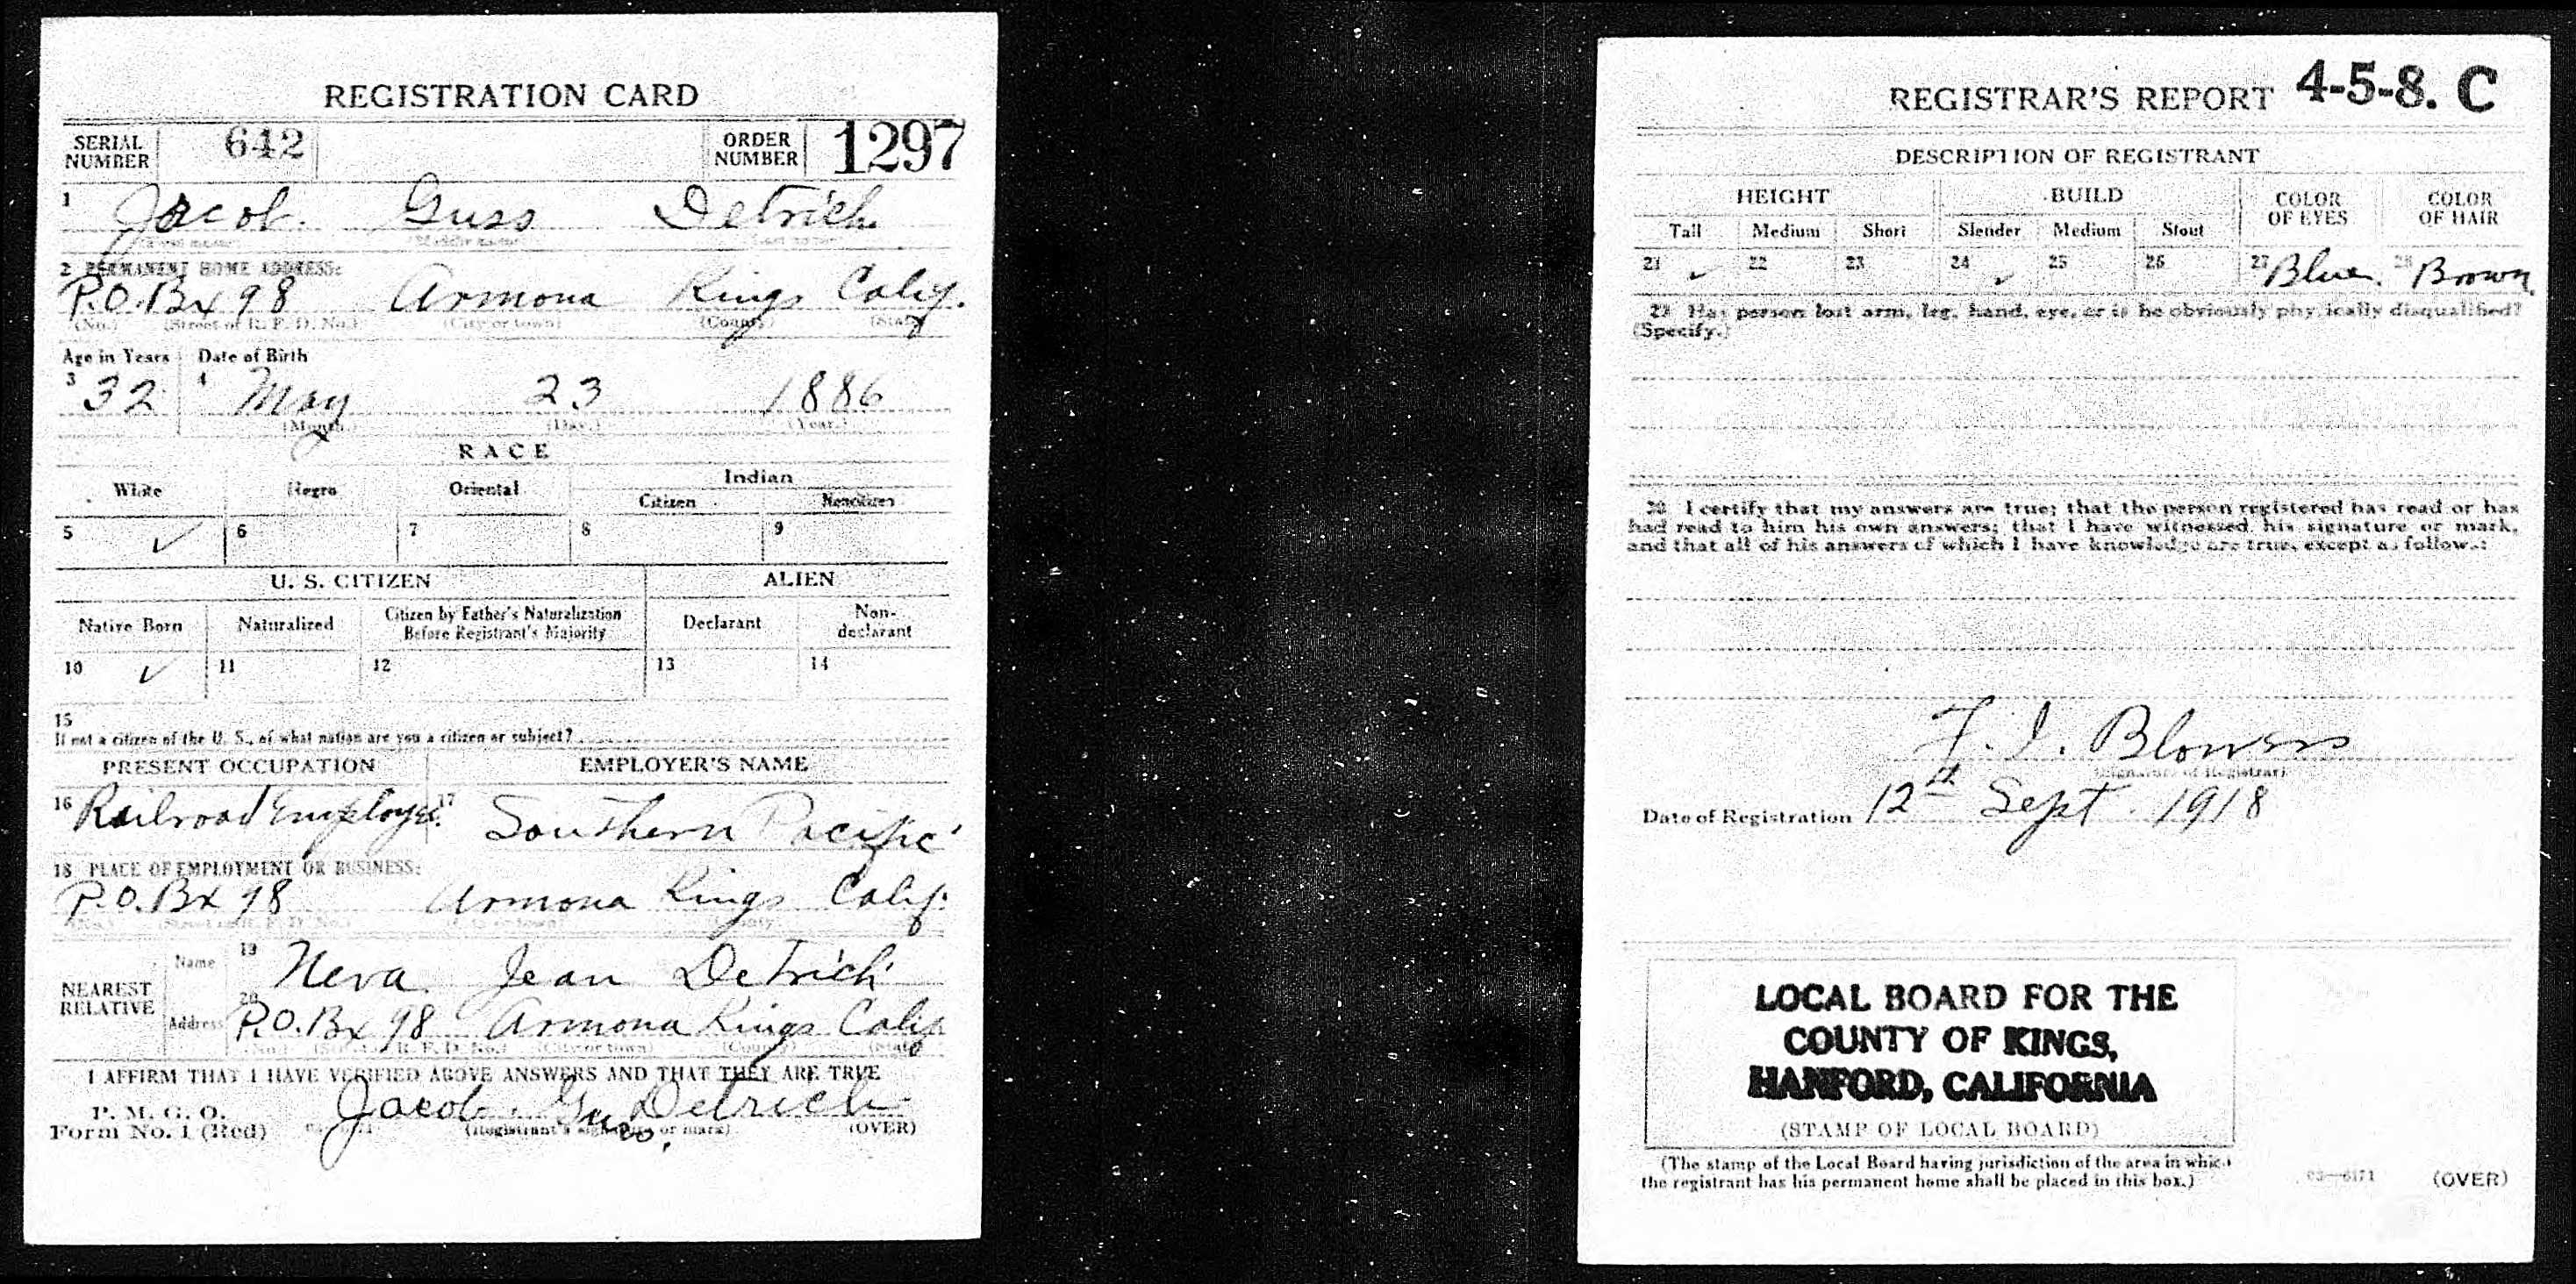 REGISTRATION CARD
SERIAL NUMBER 642 ORDER NUMBER 1297
1 Jacob Guss Detrich
(First name) (Middle name) (Last name)
2 PERMANENT HOME ADDRESS:
P.O. Bx 98 Armona Kings Calif.
(No.) (Street or R. F. D. No.) (City or town) (County) (State)
Age in Years Date of Birth
3 32 4 May 23 1886
(Month.) (Day.) (Year.)
RACE
White Negro Oriental Indian
Citizen Noncitizen
5 ✓ 6 7 8 9
U. S. CITIZEN ALIEN
Native Born Naturalized Citizen by Father's Naturalization Before Registrant's Majority Declarant Non-declarant
10 ✓ 11 12 13 14
15
If not a citizen of the U. S., of what nation are you a citizen or subject?
PRESENT OCCUPATION EMPLOYER'S NAME
16 Railroad Employe. 17 Southern Pacific
18 PLACE OF EMPLOYMENT OR BUSINESS:
P.O. Bx 98 Armona Kings Calif.
NEAREST RELATIVE Name 19 Neva Jean Detrich
Address 20 P.O. Bx 98 Armona Kings Calif
(No.) (Street or R. F. D. No.) (City or town) (County) (State)
I AFFIRM THAT I HAVE VERIFIED ABOVE ANSWERS AND THAT THEY ARE TRUE
P. M. G. O.
Form No. 1 (Red) Jacob Guss Detrich
(Registrant's signature or mark) (OVER)
REGISTRAR'S REPORT 4-5-8. C
DESCRIPTION OF REGISTRANT
HEIGHT BUILD COLOR OF EYES COLOR OF HAIR
Tall Medium Short Slender Medium Stout
21 ✓ 22 23 24 ✓ 25 26 27 Blue. 28 Brown
29 Has person lost arm, leg, hand, eye, or is he obviously physically disqualified?
(Specify.)
30 I certify that my answers are true; that the person registered has read or has
had read to him his own answers; that I have witnessed his signature or mark,
and that all of his answers of which I have knowledge are true, except as follows:
F. I. Blowers
(Signature of Registrar)
Date of Registration 12th Sept. 1918
LOCAL BOARD FOR THE
COUNTY OF KINGS,
HANFORD, CALIFORNIA
(STAMP OF LOCAL BOARD)
(The stamp of the Local Board having jurisdiction of the area in which
the registrant has his permanent home shall be placed in this box.)
03—6171 (OVER)